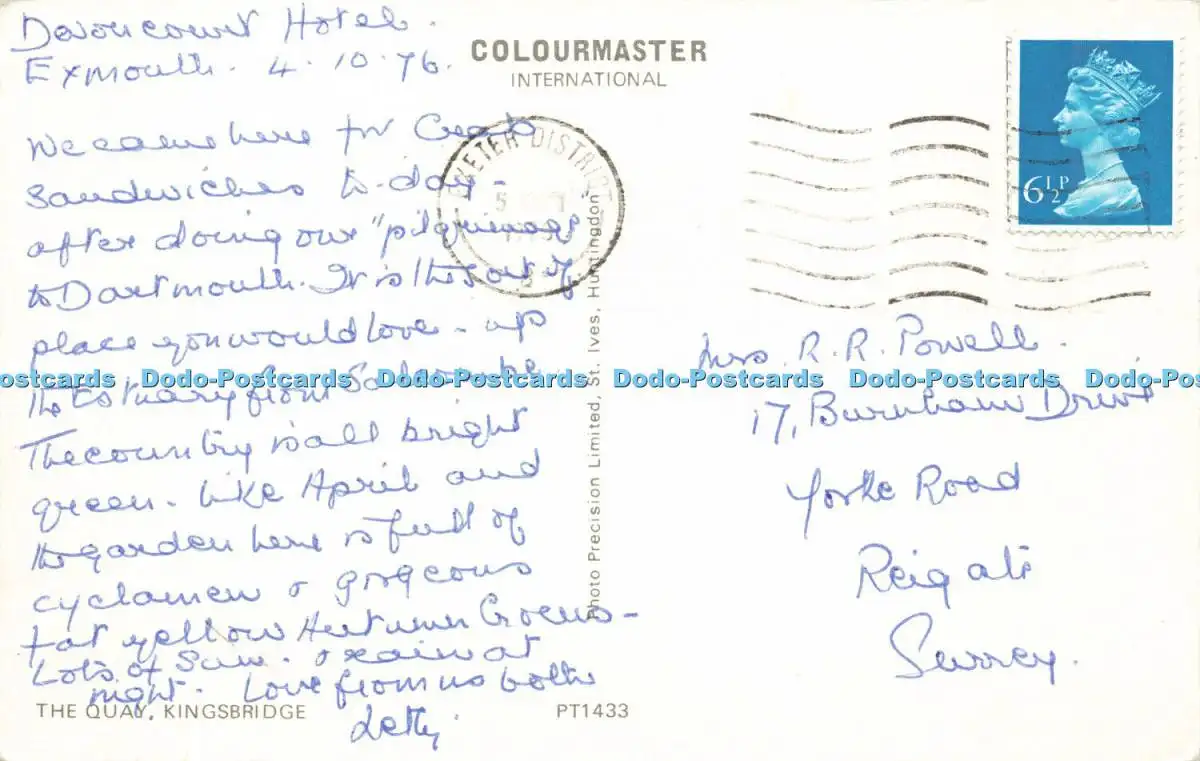 Devoncourt Hotel.
Exmouth. 4.10.76.
COLOURMASTER
INTERNATIONAL
We came here for Crab
Sandwiches to-day -
after doing our "pilgrimage
to Dartmouth. It is the sort of
place you would love - up
the Estuary from Salcombe
The country is all bright
green. like April and
the garden here is full of
cyclamen & gorgeous
fat yellow Autumn Crocus -
Lots of Sun. & rain at
night. Love from us both
Letty.
THE QUAY, KINGSBRIDGE
PT1433
Photo Precision Limited, St. Ives, Huntingdon
EXETER DISTRICT
6½P
Mrs. R. R. Powell.
17, Burnham Drive
Yorke Road
Reigate
Surrey.
ostcards Dodo-Postcards Dodo-Postcards Dodo-Postcards Dodo-Postcards Dodo-Pos